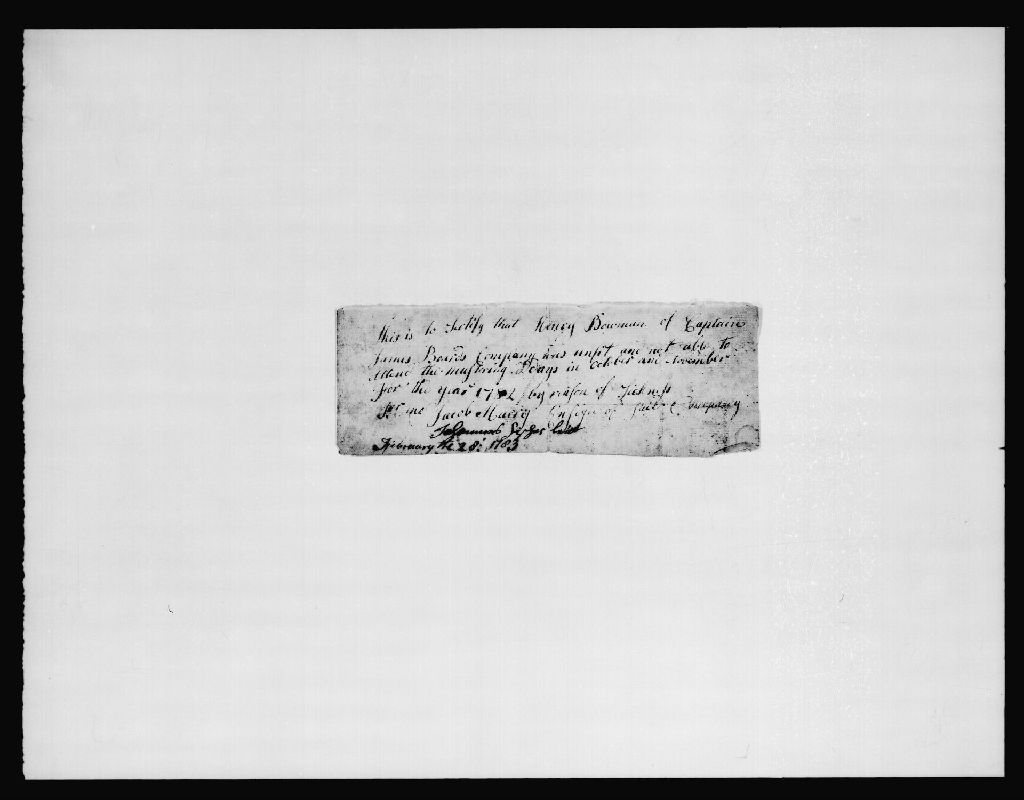 this is to Sertify that Henery Bowman of Captain
James Beards Company was unfit and not able to
Attend the mustering Days in October and November
for the year 1782 by reason of Sickness
Pr me Jacob Ensign of Said Company
February the 28: 1783